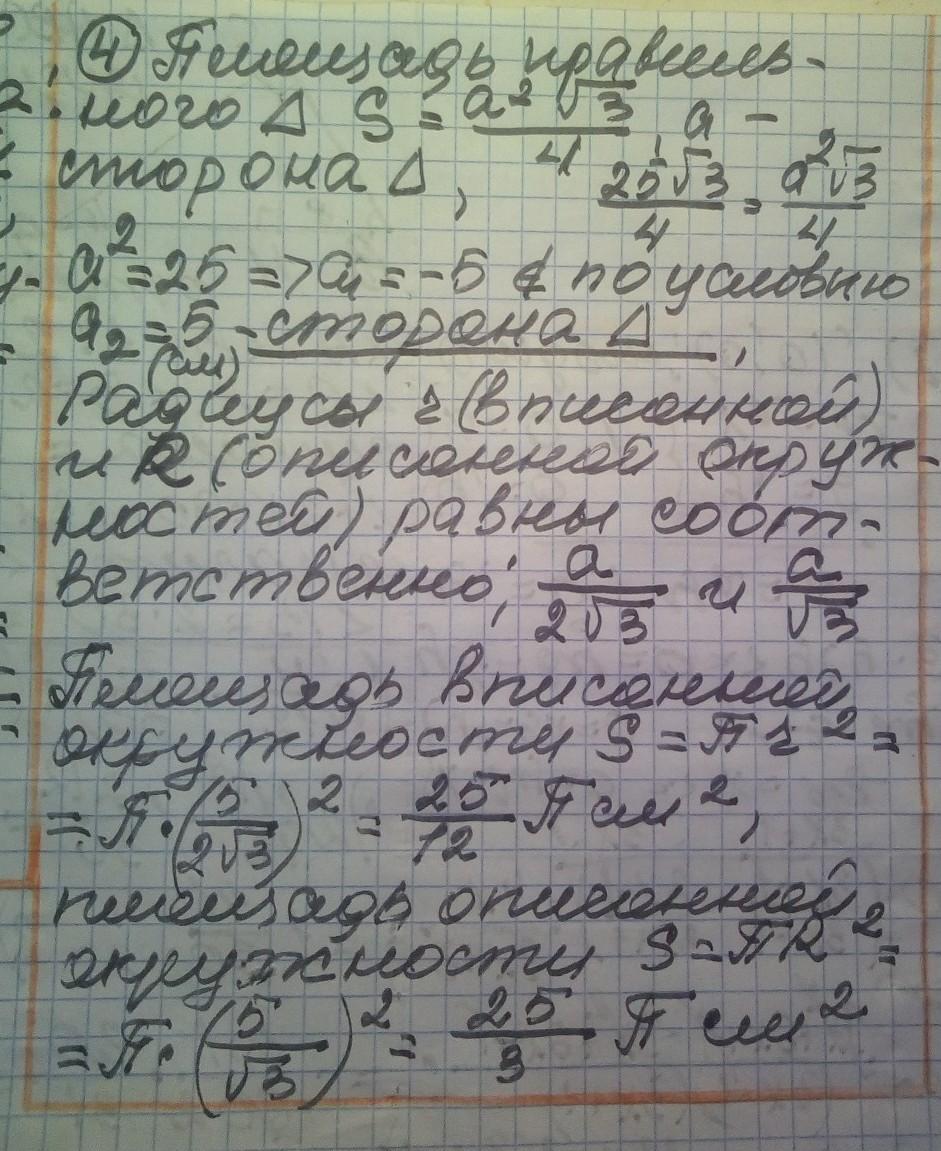 ④ Площадь правиль-
ного △ S = a²√3/4, a -
сторона △, 25√3/4 = a²√3/4
a² = 25 => a₁ = -5 ∉ по условию
a₂ = 5 - сторона △,
(см)
Радиусы r (вписанной)
и R (описанной окруж-
ностей) равны соот-
ветственно: a/2√3 и a/√3
Площадь вписанной
окружности S = πr² =
= π·(5/2√3)² = 25/12 π см²,
площадь описанной
окружности S = πR² =
= π·(5/√3)² = 25/3 π см²